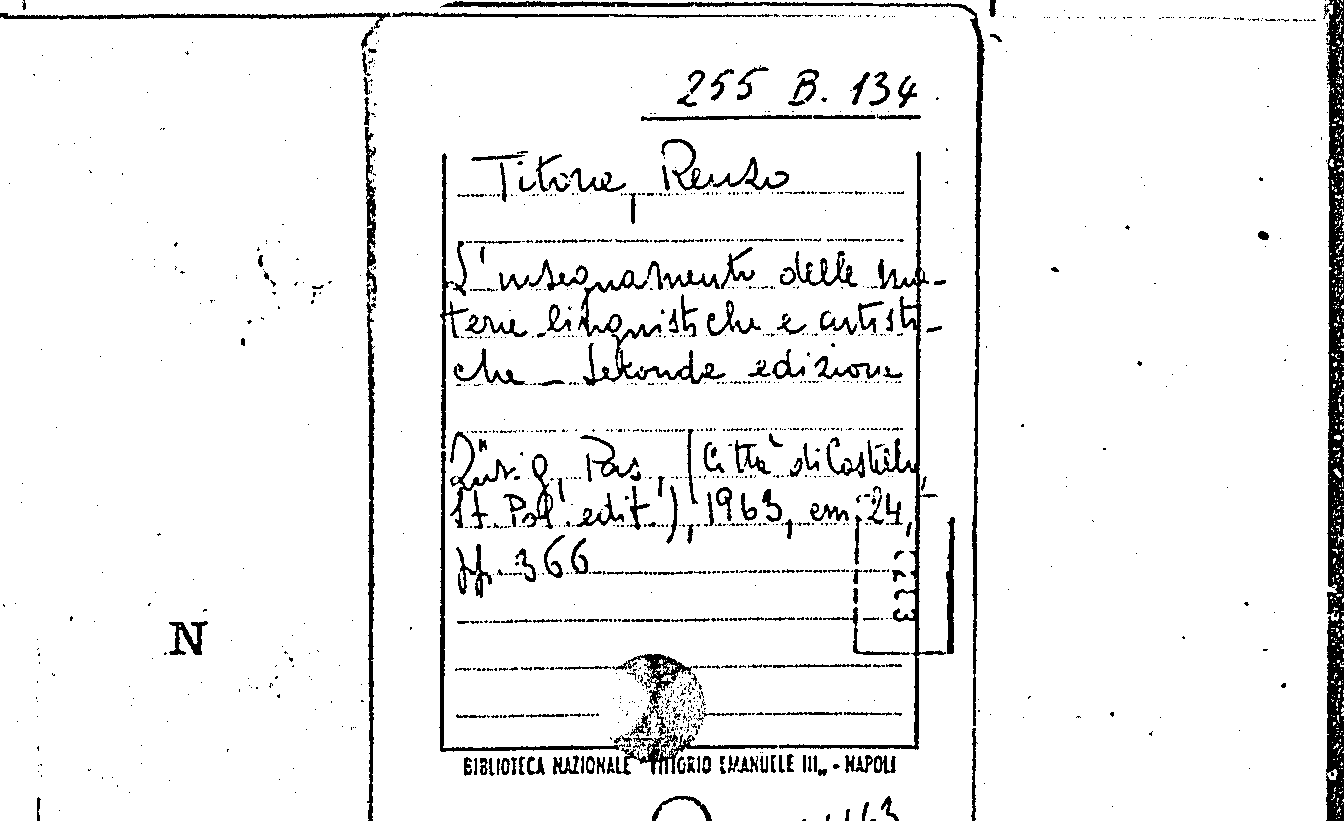 255 B. 134
Titone, Renzo
L'insegnamento delle ma-
terie linguistiche e artisti-
che - Seconda edizione
Zürig, Pas, (Città di Castello,
St. Pol. edit.), 1963, cm. 24,
pp. 366
N
BIBLIOTECA NAZIONALE "VITTORIO EMANUELE III„ - NAPOLI